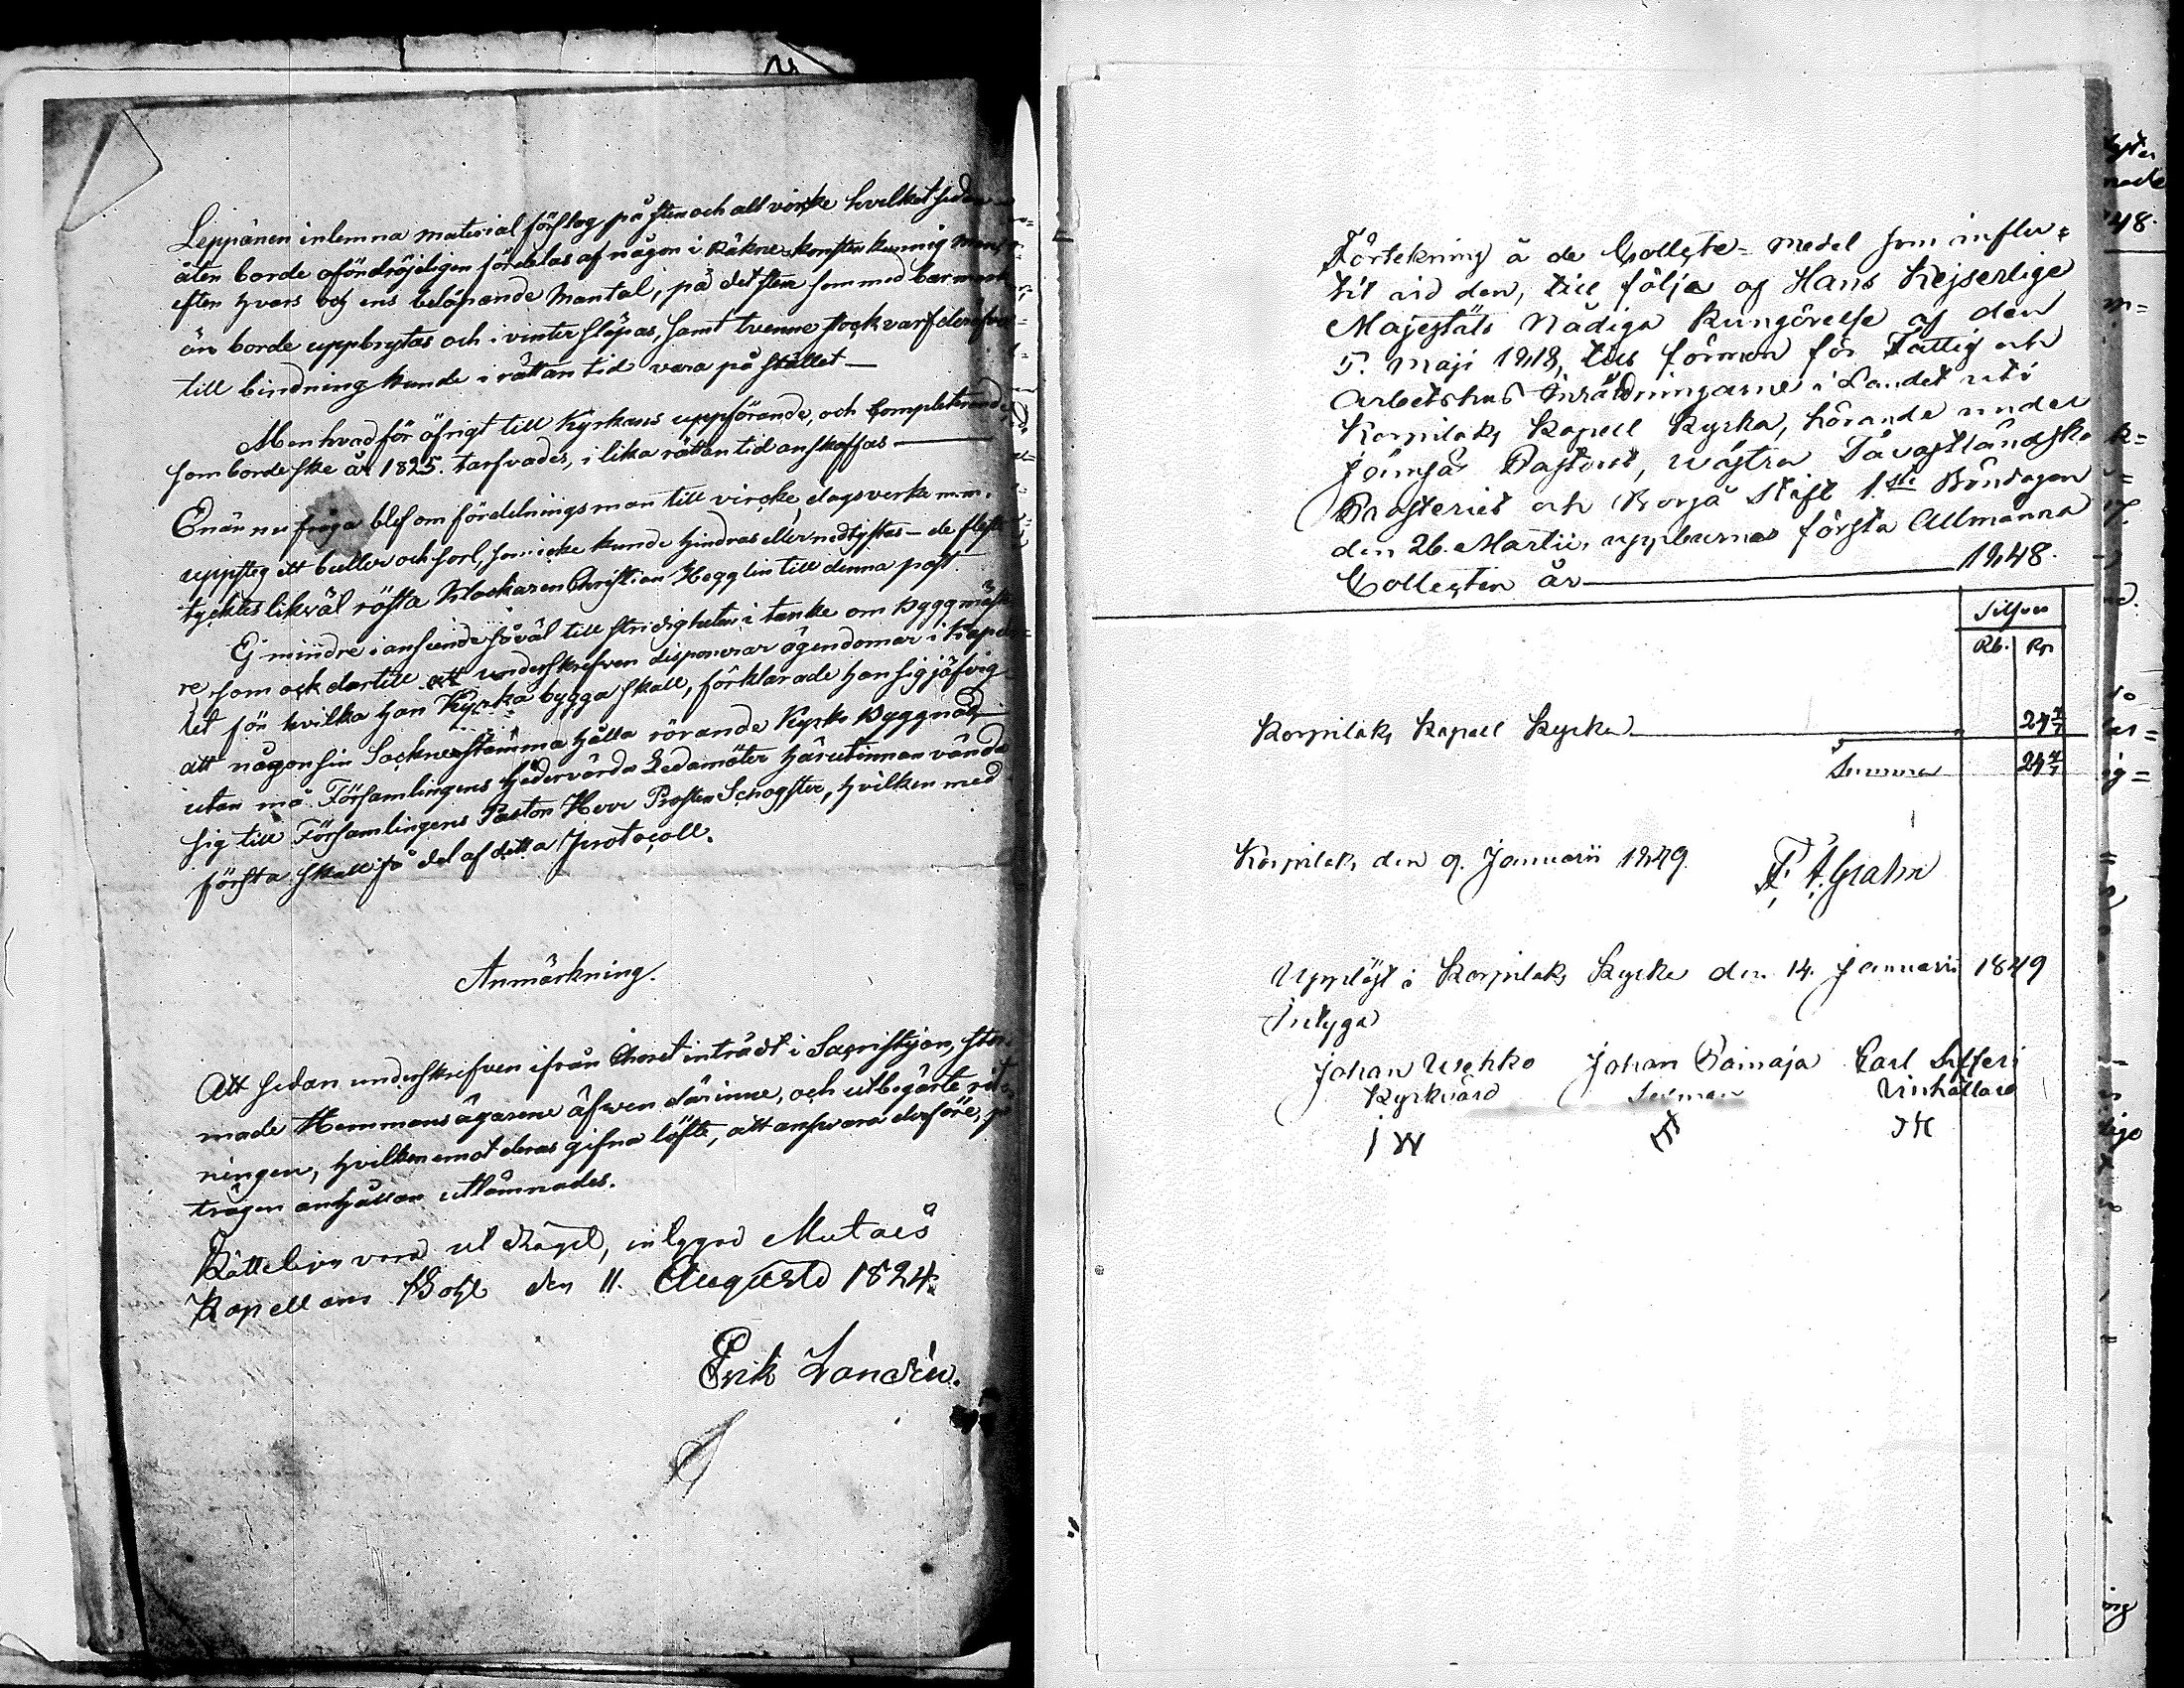 Leppänen inlemna material förslag på sten och allt virke hvilket sedan
åter borde ofördröjeligen fördelas af någon i Räkne konsten kunnig man,
efter hvars och ens belöpande Mantal, på det sten som med bar mark
än borde uppbrytas och i vinter släpas, samt tvenne stockvarf
till bindning kunde i rättan tid vara på stället —
Men hvad för öfrigt till Kyrkans uppförande, och completerande,
som borde ske år 1825. tarfvades, i lika rättan tid anskaffas —
Enär nu fråga blef om fördelningsman till virke, dagsverke m.m.
uppsteg ett buller och sorl, som icke kunde hindras eller nedtystas — de fleste
tycktes likväl rösta Klockaren Christian Hegglin till denna post.
Ej mindre i anseende såväl till stridigheten i tanke om Byggmästa=
re, som ock dertill att underskrefven disponerar ägendomar i Kapel=
let för hvilka han Kyrka bygga skall, förklarade han sig jäfvig
att någonsin Socknestämma hålla rörande Kyrko Byggnad
utan må Församlingens hedervärda Ledamöter härutinnan vända
sig till Församlingens Pastor Herr Prosten Schogster, hvilken med
första skall få del af detta Protocoll.
Anmärkning.
Att sedan underskrefven ifrån Choret inträdt i Sacristijan,
made Hemmansägarene äfwen därinne, och utbegärte rit
ningen, hvilken emot deras gifna löfte, att answara derföre, på
trägen anhållan utlämnades.
Rätteligen vara utdragit, intygar Mutaes
Kapellans Bohl den 11. Augusti 1824.
Erik Landén.
Förtekning å de Collecte=medel som influ=
tit vid den, till följe af Hans Kejserlige
Majestäts Nådiga Kungörelse af den
5. Maji 1818, till förmon för Fattig och
Arbetshus Inrättningarne i Landet uti
Korpilaks Kapell Kyrka, hörande under
Jämsä Pastorat, Wästra Tavastländska
Prosteriet och Borgå Stift 1.sta Böndagen
den 26. Martii, uppburna första Allmänna
Collecten år — 1848.
Silfver
Rb. Kp
Korpilaks Kapell Kyrka — 24 4/7
Summa 24 4/7
Korpilaks den 9. Januarii 1849.
F. A. Grahn
Uppläst i Korpilaks Kyrka den 14. Januarii 1849
Intyga
Johan Wehko Johan Raimaja Carl Sifferi
Kyrkvärd Sexman Vinhållare